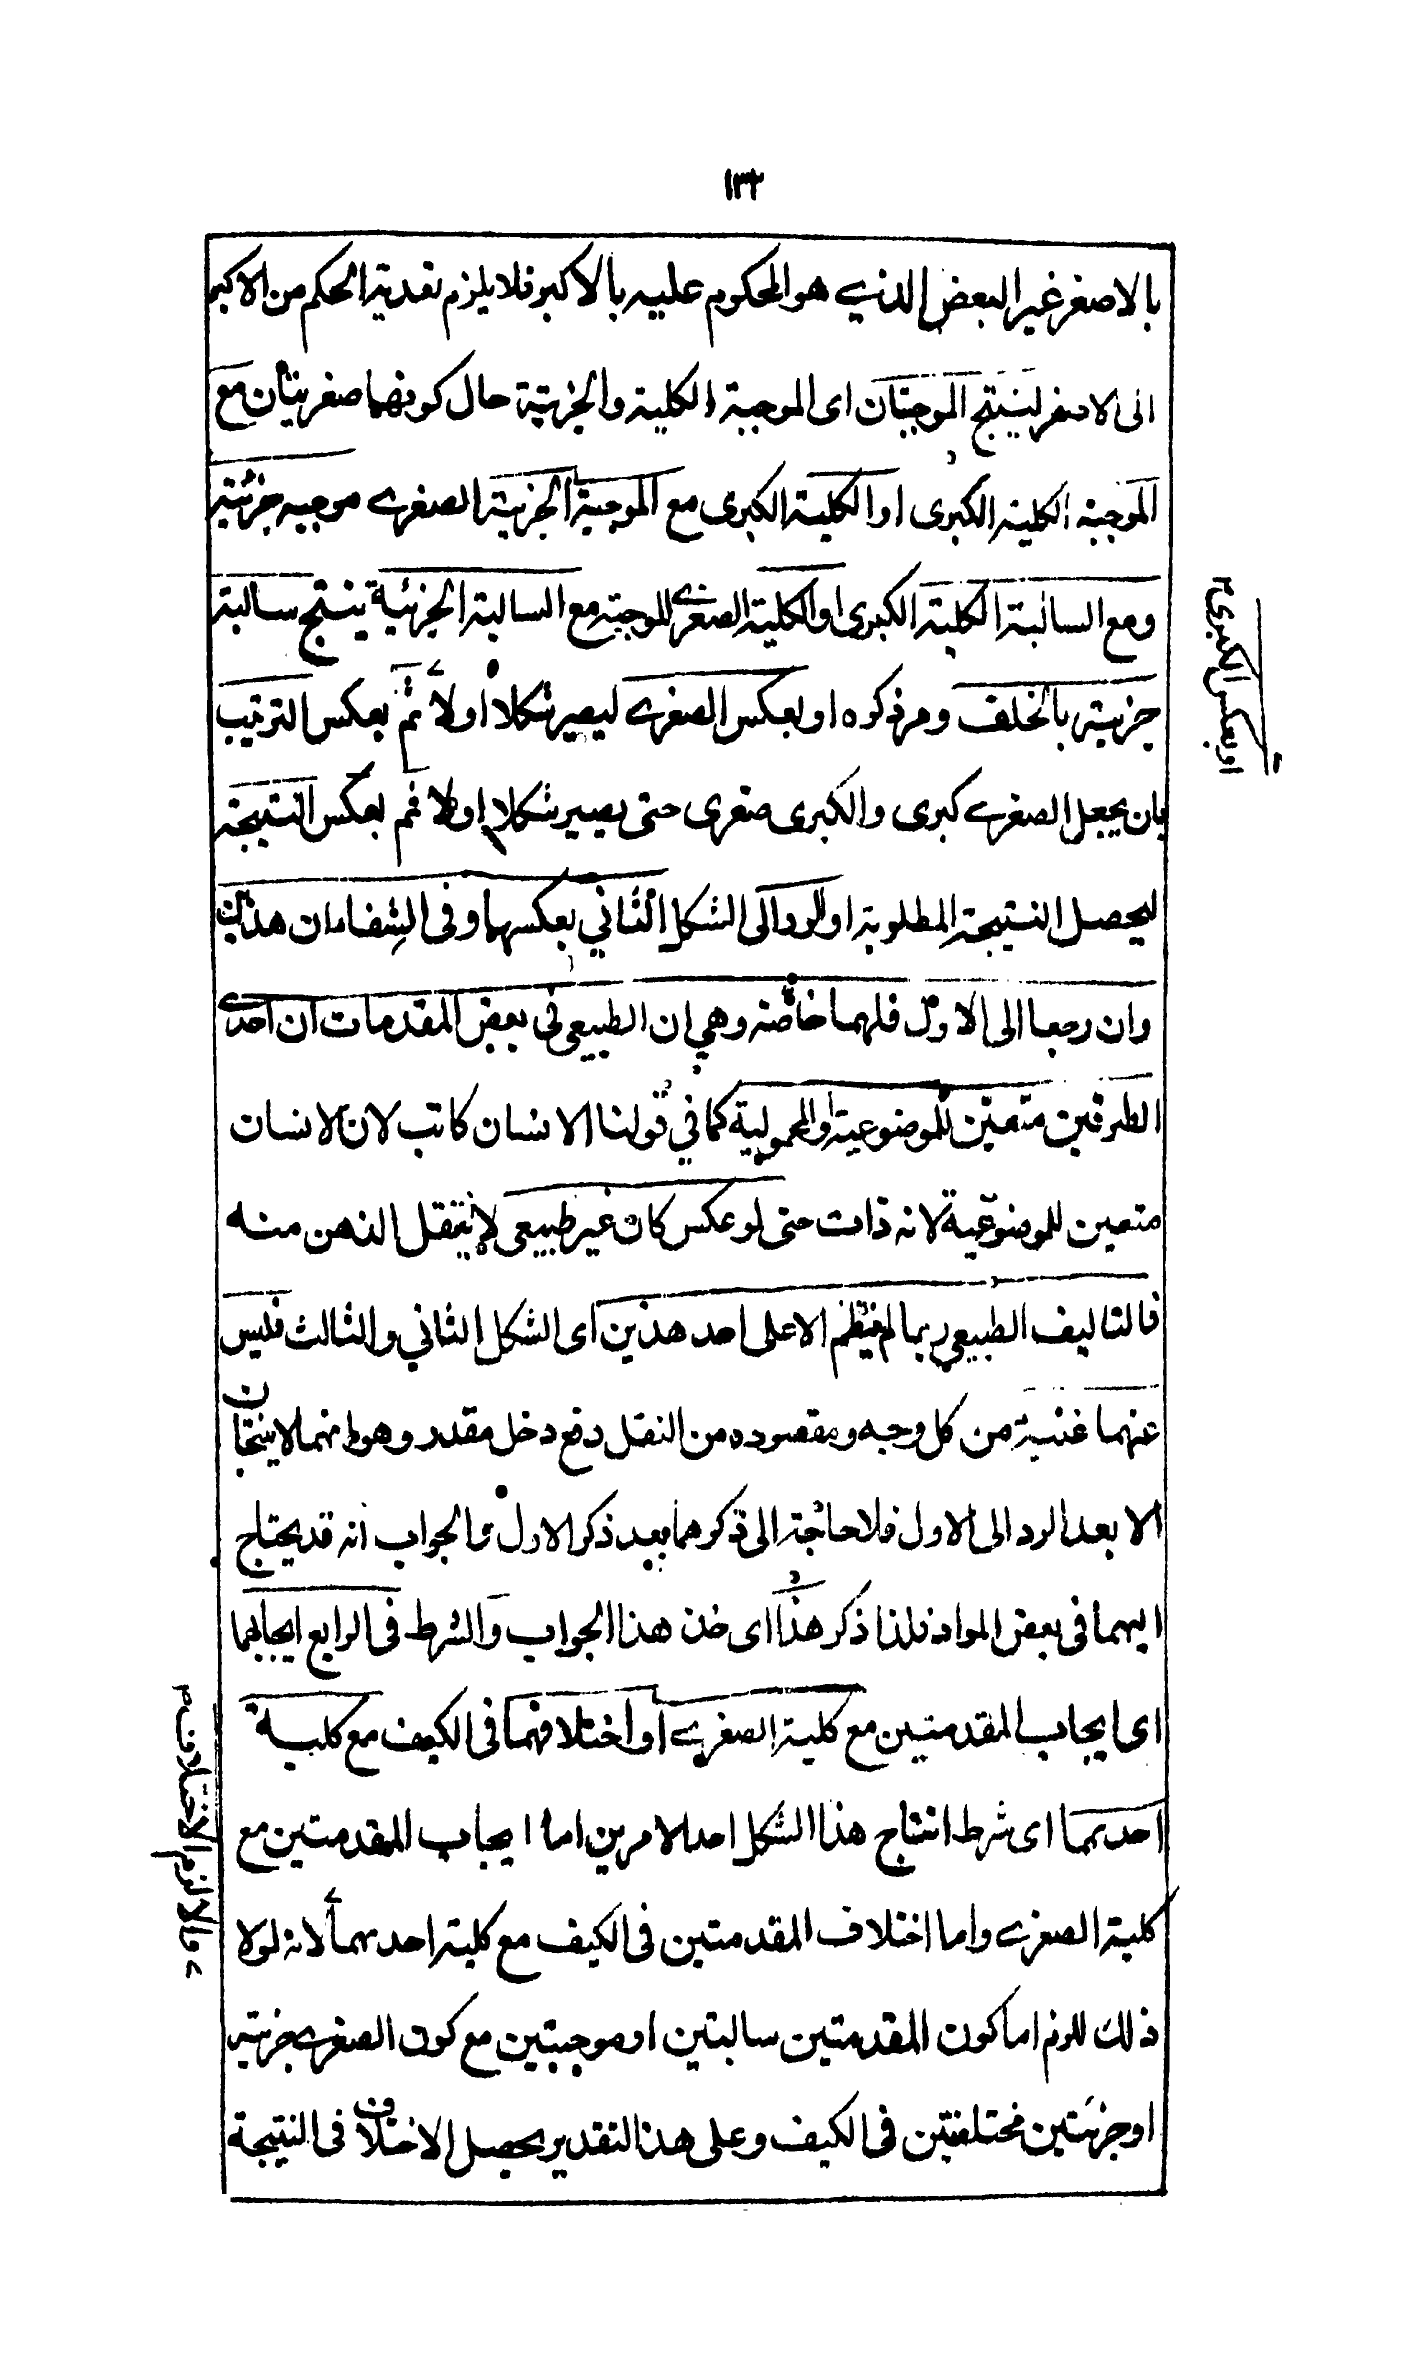 ١٣٢
بالاصغر غير البعض الذي هو المحكوم عليه بالاكبر فلا يلزم تعدية الحكم من الاكبر
الى الاصغر لينتج الموجبتان اى الموجبة الكلية والجزئية حال كونهما صغريتان مع
الموجبة الكلية الكبرى او الكلية الكبرى مع الموجبة الجزئية الصغرے موجبه جزئية
ومع السالبة الكلية الكبرى او الكلية الصغرے الموجبة مع السالبة الجزئية ينتج سالبة
جزئية بالخلف ومر ذكره او بعكس الصغرے ليصير شكلا اولا ثم بعكس الترتيب
بان يجعل الصغرے كبرى والكبرى صغرى حتى يصير شكلا اولا ثم بعكس النتيجة
ليحصل النتيجة المطلوبة او الرد الى الشكل الثاني بعكسهما وفى الشفاء ان هذين
وان رجعا الى الاول فلهما خاصة وهي ان الطبيعي في بعض المقدمات ان احدى
الطرفين متعين للموضوعية والمحمولية كما في قولنا الانسان كاتب لان الانسان
متعين للموضوعية لانه ذات حتى لو عكس كان غير طبيعي لا ينتقل الذهن منه
فالتاليف الطبيعي ربما لم ينتظم الا على احد هذين اى الشكل الثاني والثالث فليس
عنهما غنية من كل وجه ومقصوده من النقل دفع دخل مقدر وهو انهما لا ينتجان
الا بعد الرد الى الاول فلا حاجة الى ذكرهما بعد ذكر الاول والجواب انه قد يحتاج
اليهما فى بعض المواد فلذا ذكر هذا اى خذ هذا الجواب والشرط فى الرابع ايجابهما
اى ايجاب المقدمتين مع كلية الصغرے او اختلافهما فى الكيف مع كلية
احدىهما اى شرط انتاج هذا الشكل احد الامرين اما ايجاب المقدمتين مع
كلية الصغرے واما اختلاف المقدمتين فى الكيف مع كلية احدىهما لانه لولا
ذلك للزم اما كون المقدمتين سالبتين او موجبتين مع كون الصغرے جزئية
او جزئيتين مختلفتين فى الكيف وعلى هذا التقدير يحصل الاختلاف فى النتيجة
او بعكس الكبرى ١٢